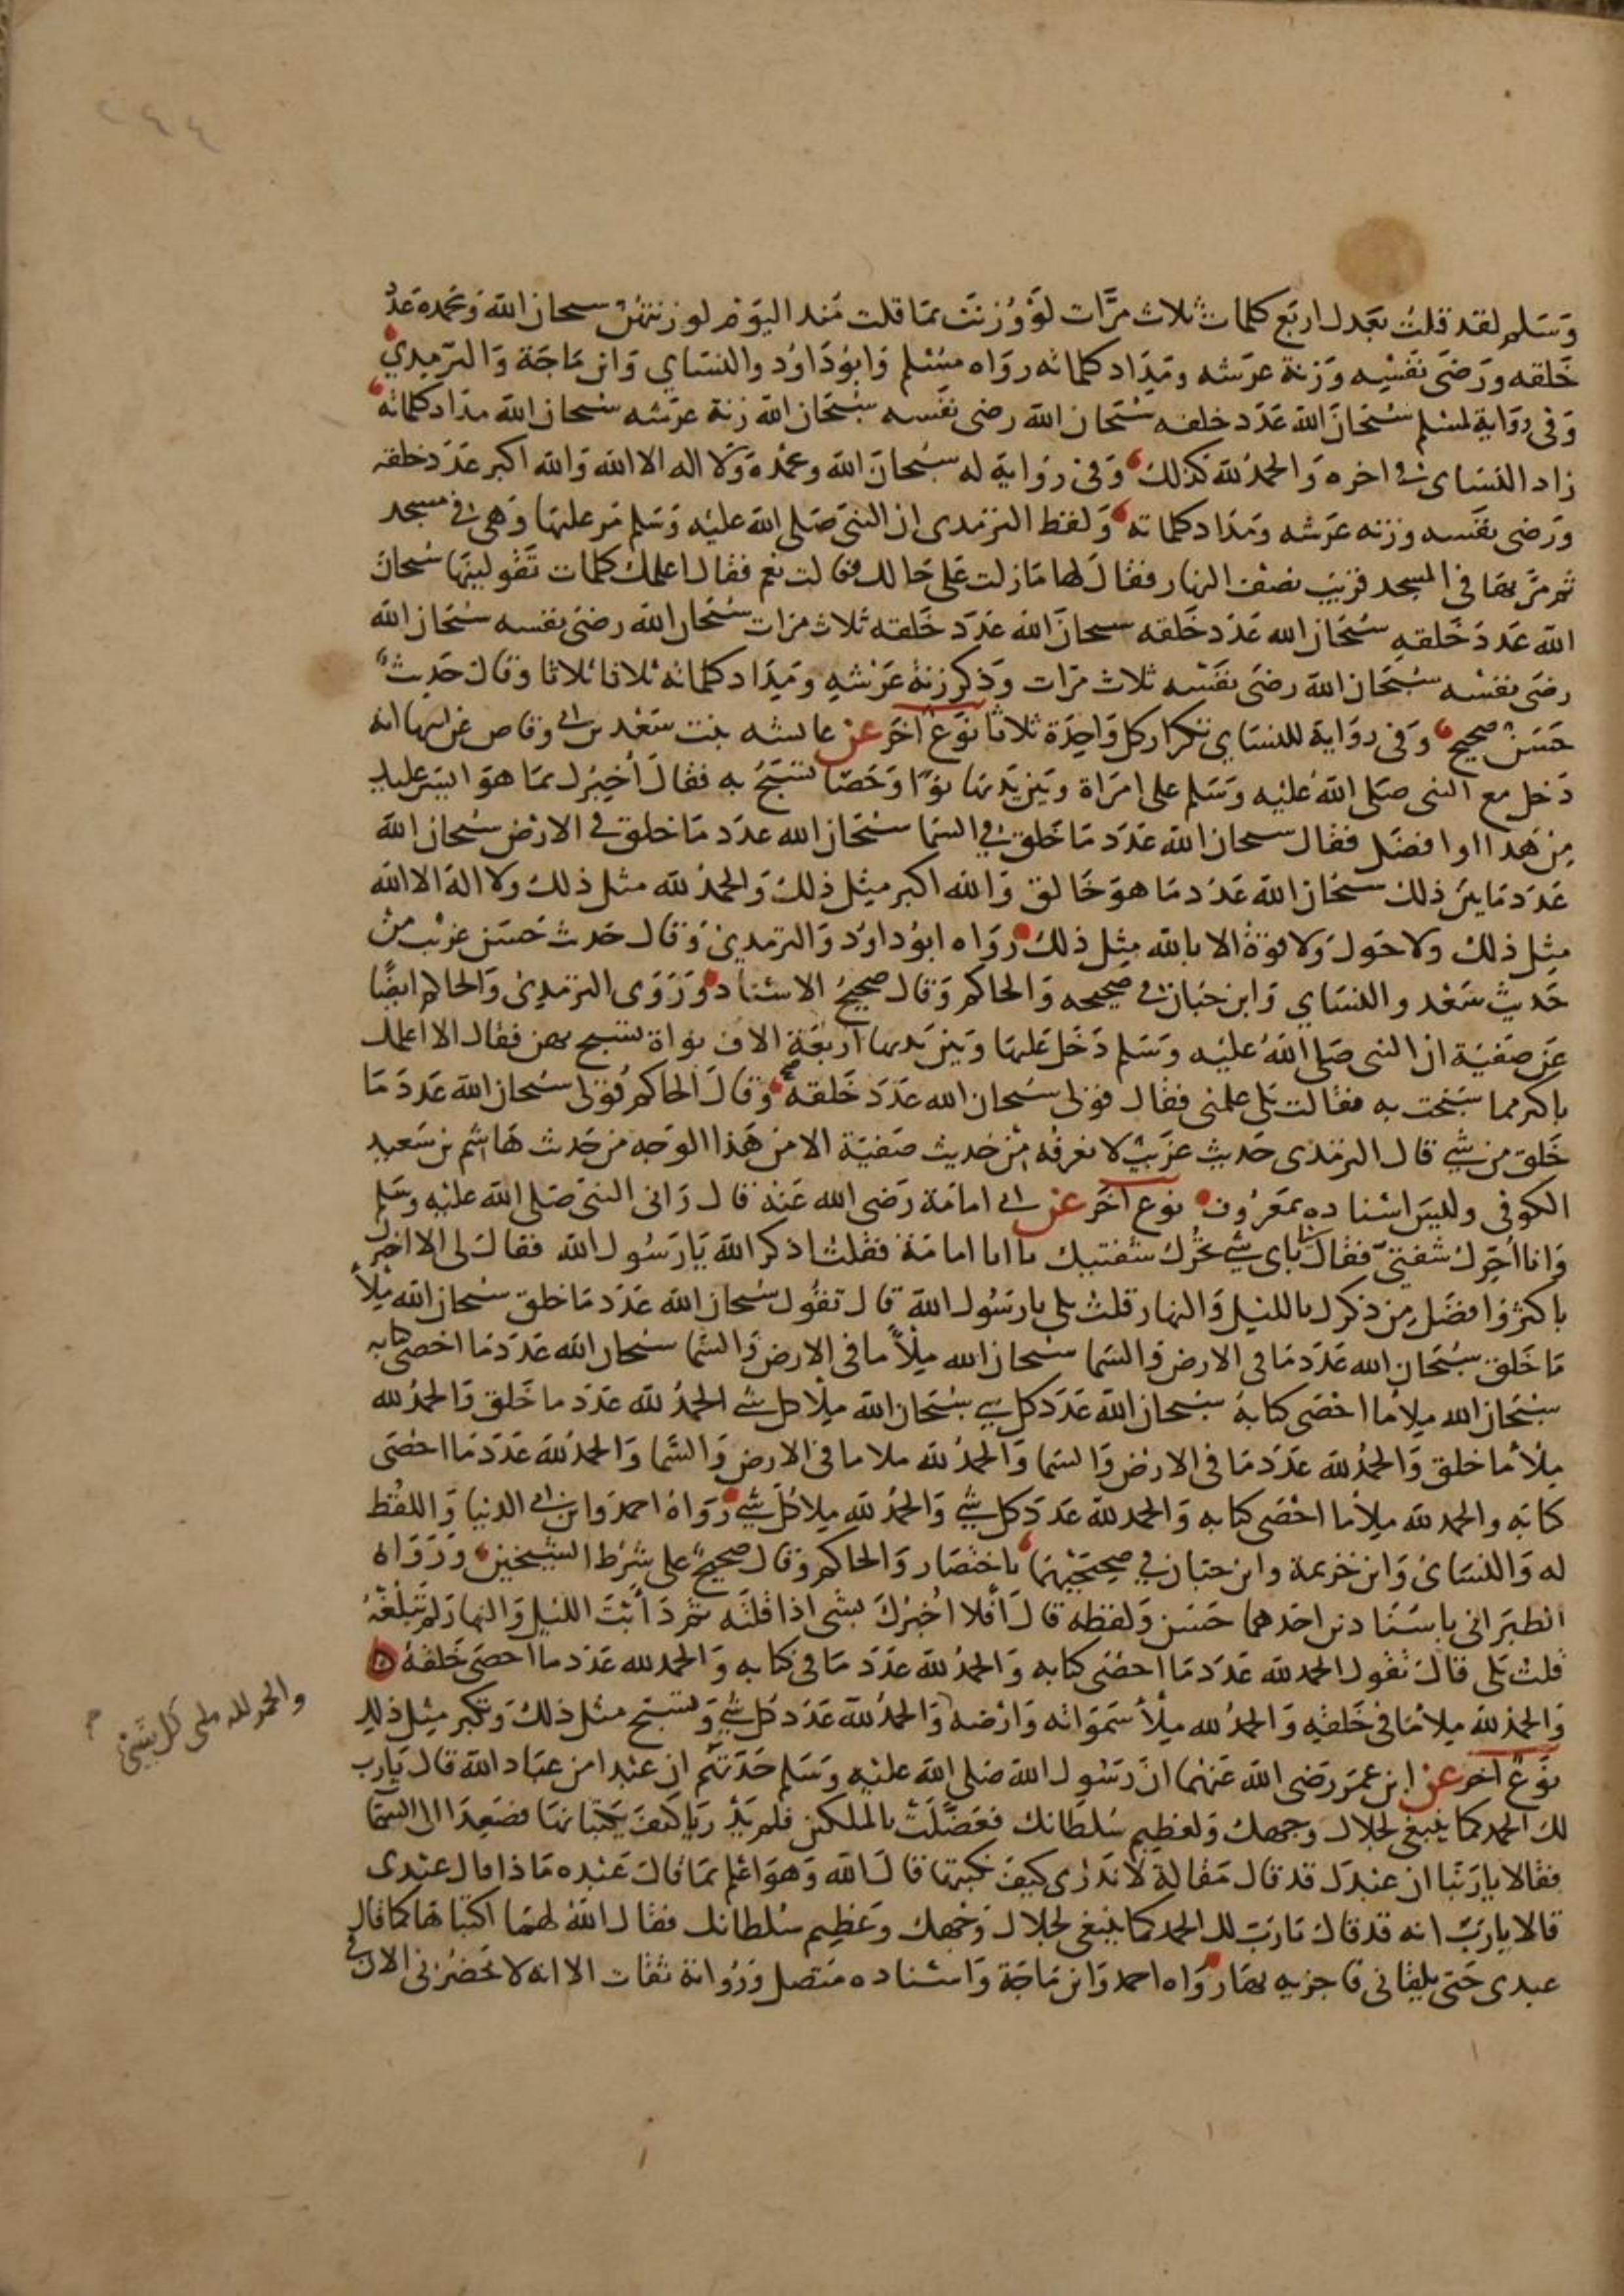 ٢٤٤
وسلم لقد قلت بعدك اربع كلمات ثلاث مرات لو وزنت بما قلت منذ اليوم لوزنتهن سبحان الله وبحمده عدد
خلقه ورضى نفسه وزنة عرشه ومداد كلماته رواه مسلم وابو داود والنساي وابن ماجة والترمدي
وفي رواية لمسلم سبحان الله عدد خلقه سبحان الله رضى نفسه سبحان الله زنة عرشه سبحان الله مداد كلماته
زاد النساى في اخره والحمد لله كذلك وفي رواية له سبحان الله وبحمده ولا اله الا الله والله اكبر عدد خلقه
ورضى نفسه وزنه عرشه ومداد كلماته ولفظ الترمدى ان النبي صلى الله عليه وسلم مر عليها وهى في مسجد
ثم مر بها في المسجد قريب نصف النهار فقال لها مازلت على حالك فقالت نعم فقال اعلمك كلمات تقولينها سبحان
الله عدد خلقه سبحان الله عدد خلقه سبحان الله عدد خلقه ثلاث مرات سبحان الله رضى نفسه سبحان الله
رضى نفسه سبحان الله رضى نفسه ثلاث مرات وذكر زنة عرشه ومداد كلماته ثلاثا ثلاثا وقال حديث
حسن صحيح وفى رواية للنساي تكرار كل واحدة ثلاثا نوع اخر عن عائشه بنت سعد بن ابي وقاص عن ابيها انه
دخل مع النبى صلى الله عليه وسلم على امراة وبين يديها نوا او حصا تسبح به فقال أخبرك بما هو ايسر عليك
من هدا او افضل فقال سبحان الله عدد ما خلق في السما سبحان الله عدد ما خلق في الارض سبحان الله
عدد ما بين ذلك سبحان الله عدد ما هو خالق والله اكبر مثل ذلك والحمد لله مثل ذلك ولا اله الا الله
مثل ذلك ولا حول ولا قوة الا بالله مثل ذلك رواه ابو داود والترمدي وقال حديث حسن غريب من
حديث سعد والنساي وابن حبان في صحيحه والحاكم وقال صحيح الاسناد وروى الترمدي والحاكم ايضا
عن صفية ان النبى صلى الله عليه وسلم دخل عليها وبين يديها اربعة الاف نواة تسبح بهن فقال الا اعلمك
باكثر مما سبحت به فقالت بلى علمنى فقال قولى سبحان الله عدد خلقه وقال الحاكم قولى سبحان الله عدد ما
خلق من شي قال الترمذى حديث غريب لا نعرفه من حديث صفية الا من هذا الوجه من حديث هاشم بن سعيد
الكوفي وليس اسناده بمعروف نوع اخر عن ابي امامة رضى الله عنه قال رانى النبي صلى الله عليه وسلم
وانا احرك شفتي فقال باى شي تحرك شفتيك يا ابا امامة فقلت اذكر الله يا رسول الله فقال لى الا اخبرك
باكثر وافضل من ذكرك بالليل والنهار قلت بلى يا رسول الله قال تقول سبحان الله عدد ما خلق سبحان الله ملأ
ما خلق سبحان الله عدد ما في الارض والسما سبحان الله ملأ ما في الارض والسما سبحان الله عدد ما احصى كتابه
سبحان الله ملأ ما احصى كتابه سبحان الله عدد كل شي سبحان الله ملأ كل شي الحمد لله عدد ما خلق والحمد لله
ملأ ما خلق والحمد لله عدد ما في الارض والسما والحمد لله ملا ما في الارض والسما والحمد لله عدد ما احصى
كتابه والحمد لله ملأ ما احصى كتابه والحمد لله عدد كل شي والحمد لله ملا كل شي رواه احمد وابن ابي الدنيا واللفظ
له والنساى وابن خزيمة وابن حبان في صحيحيهما باختصار والحاكم وقال صحيح على شرط الشيخين ورواه
الطبرانى باسنادين احدهما حسن ولفظه قال أفلا اخبرك بشى اذا قلته ثم دأبت الليل والنهار لم تبلغه
قلت بلى قال تقول الحمد لله عدد ما احصى كتابه والحمد لله عدد ما في كتابه والحمد لله عدد ما احصى خلقه
والحمد لله ملا ما في خلقه والحمد لله ملأ سمواته وارضه والحمد لله عدد كل شي وتسبح مثل ذلك وتكبر مثل ذلك
والحمد لله على كل شيئ
نوع اخر عن ابن عمر رضى الله عنهما ان رسول الله صلى الله عليه وسلم حدثهم ان عبدا من عباد الله قال يا رب
لك الحمد كما ينبغي لجلال وجهك ولعظيم سلطانك فعضلت بالملكين فلم يدريا كيف يكتبانها فصعدا الى السما
فقالا يا ربنا ان عبدك قد قال مقالة لا ندرى كيف نكتبها قال الله وهو اعلم بما قال عبده ماذا قال عبدى
قالا يا رب انه قد قال يا رب لك الحمد كما ينبغي لجلال وجهك وعظيم سلطانك فقال الله لهما اكتباها كما قال
عبدى حتى يلقانى فاجزيه بها رواه احمد وابن ماجة واسناده متصل ورواته ثقات الا انه لا يحضرنى الان في